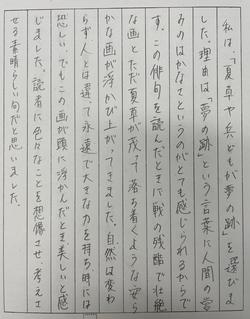 私は、「夏草や兵どもが夢の跡」を選びま
した。理由は「夢の跡」という言葉に人間の営
みのはかなさというのがとても感じられるからで
す。この俳句を読んだときに戦の残酷で壮絶
な画とただ夏草が茂って落ち着くような安ら
かな画が浮かび上がってきました。自然は変わ
らず人とは違って永遠で大きな力を持ち、時には
恐しい、でもこの画が頭に浮かんだとき美しいと感
じました。読者に色々なことを想像させ、考えさ
せる素晴らしい句だと思いました。